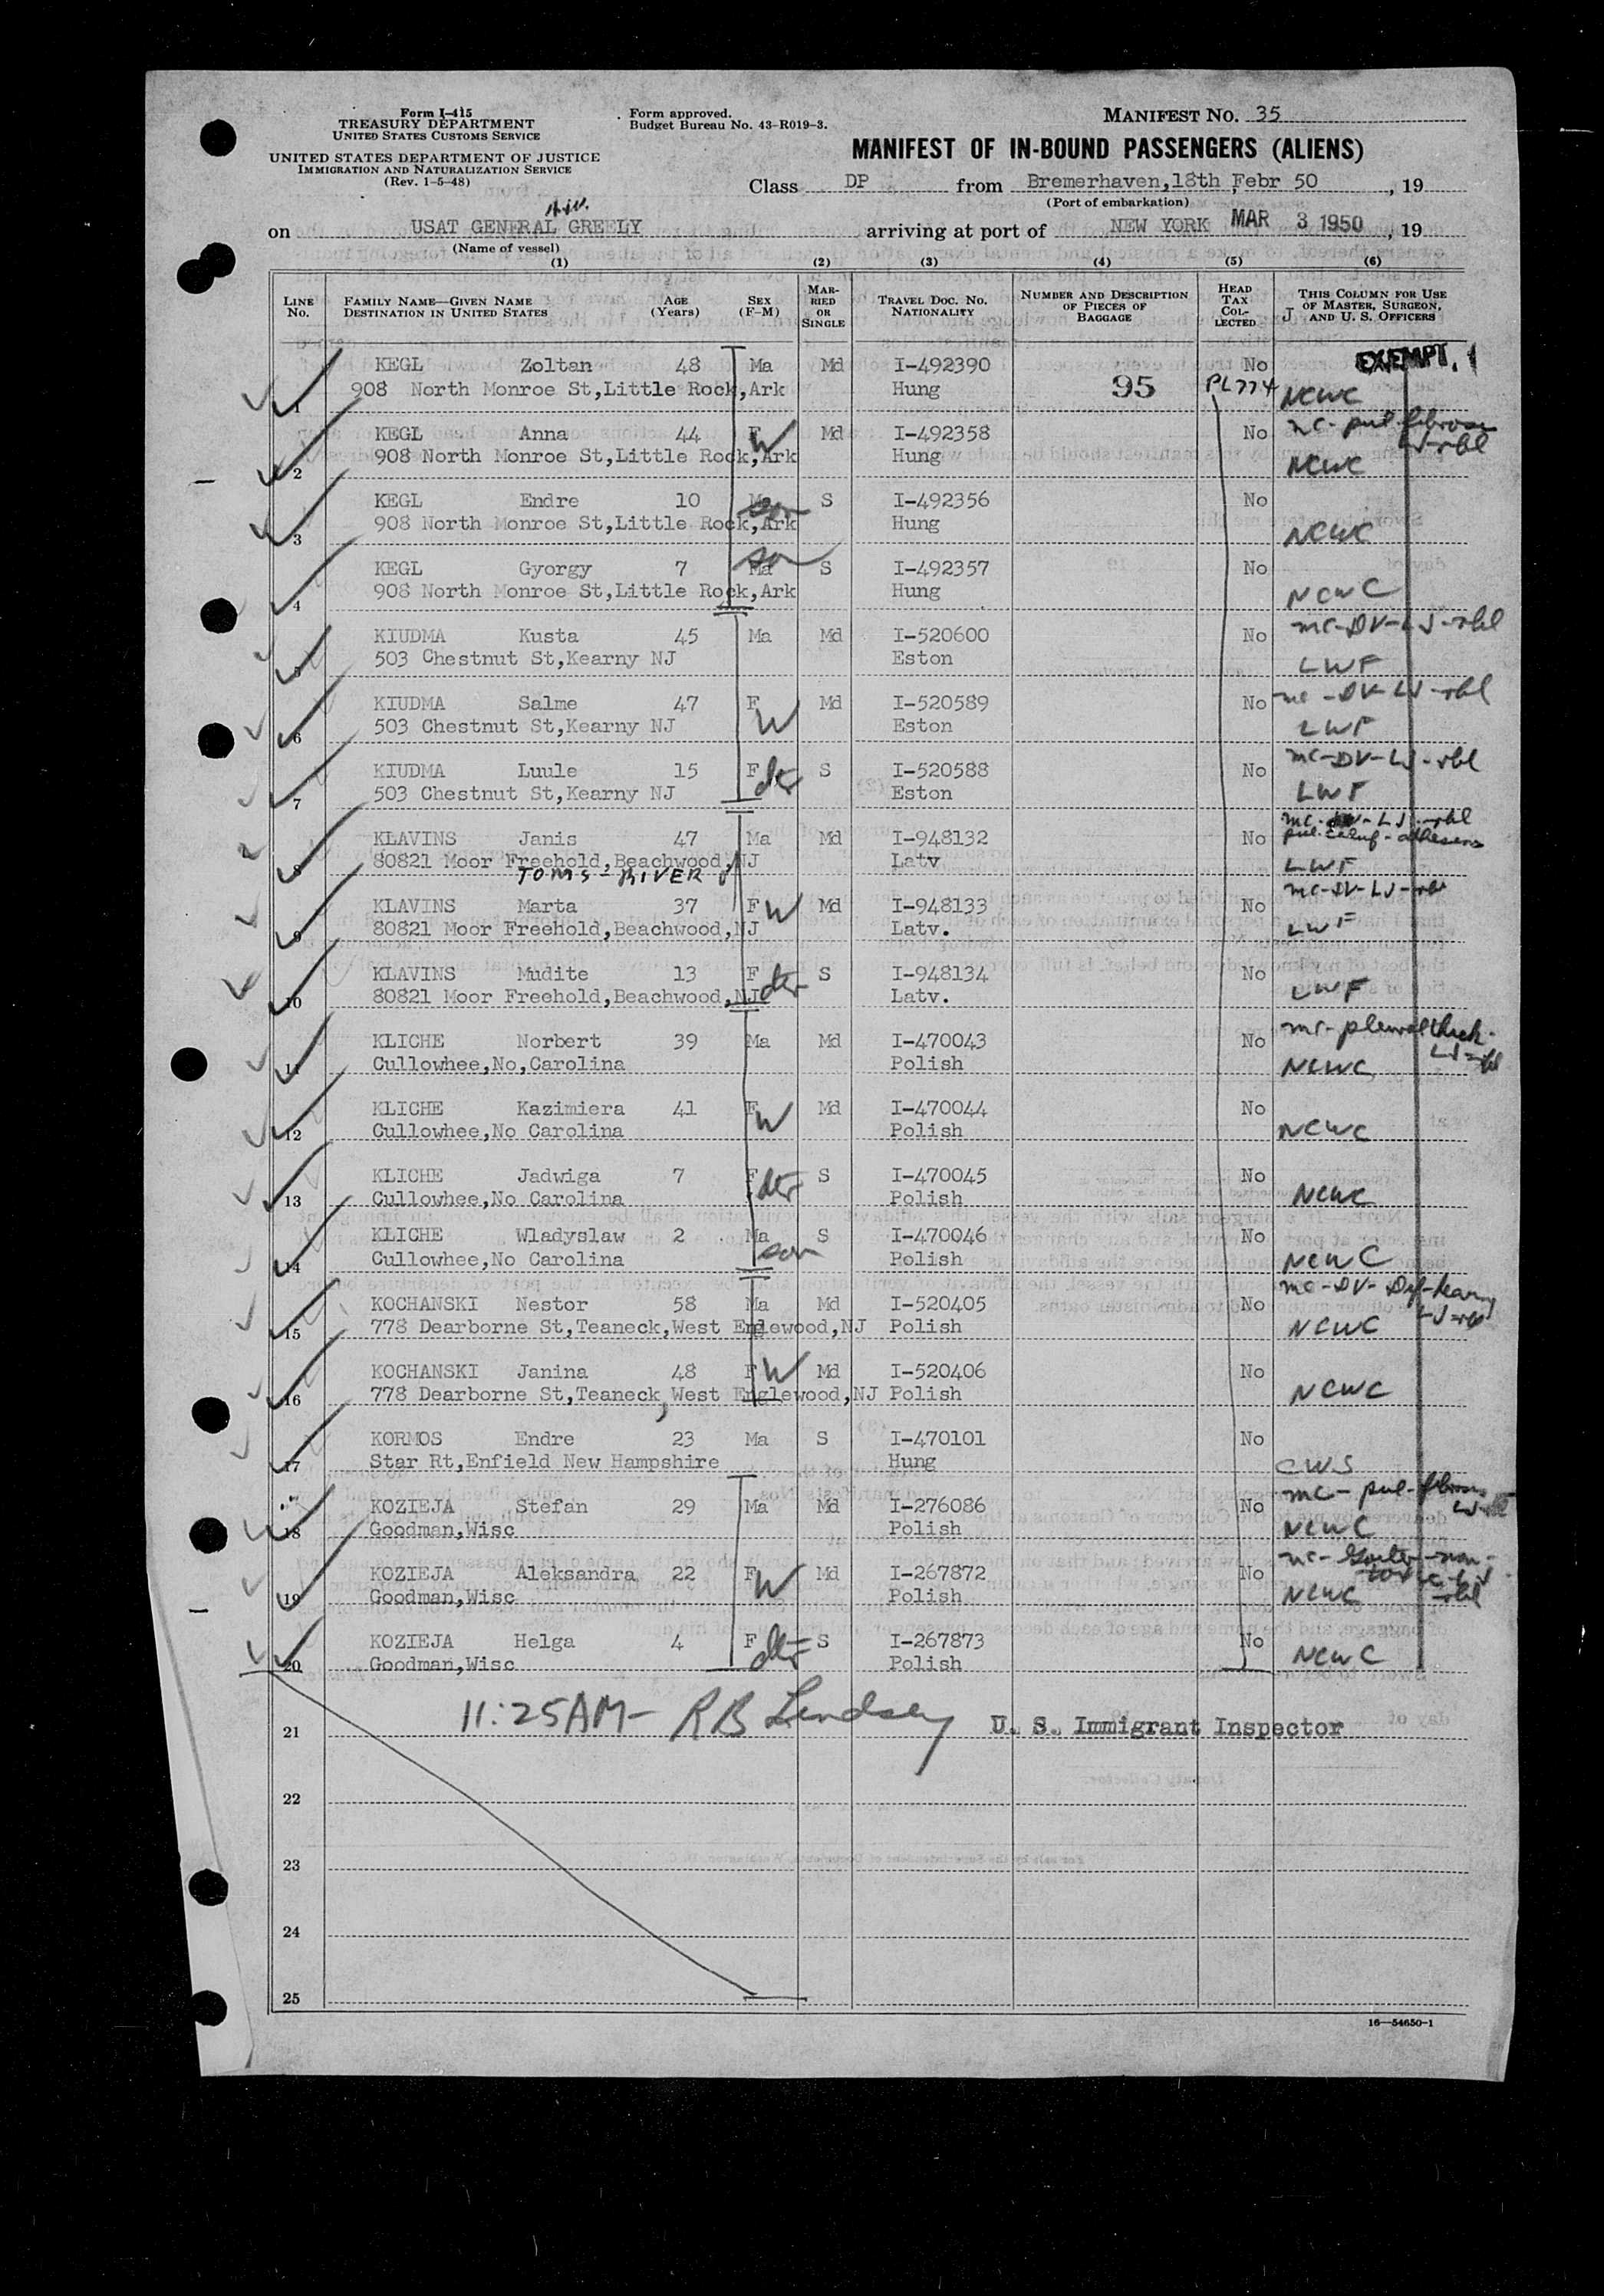 Form I-415
TREASURY DEPARTMENT
UNITED STATES CUSTOMS SERVICE
UNITED STATES DEPARTMENT OF JUSTICE
IMMIGRATION AND NATURALIZATION SERVICE
(Rev. 1-5-48)
Form approved.
Budget Bureau No. 43-R019-3.
MANIFEST NO. 35
MANIFEST OF IN-BOUND PASSENGERS (ALIENS)
Class DP from Bremerhaven,18th Febr 50, 19
(Port of embarkation)
on USAT GENERAL GREELY arriving at port of NEW YORK MAR 3 1950, 19
(Name of vessel)
(1) (2) (3) (4) (5) (6)
LINE No. FAMILY NAME—GIVEN NAME DESTINATION IN UNITED STATES AGE (Years) SEX (F-M) MARRIED OR SINGLE TRAVEL DOC. NO. NATIONALITY NUMBER AND DESCRIPTION OF PIECES OF BAGGAGE HEAD TAX COLLECTED THIS COLUMN FOR USE OF MASTER, SURGEON, AND U. S. OFFICERS
KEGL Zoltan 48 Ma Md I-492390 No EXEMPT.
1 908 North Monroe St,Little Rock,Ark Hung 95 PL774 NCWC
KEGL Anna 44 F W Md I-492358 No mc- pul-fibrosis LJ-rbl
2 908 North Monroe St,Little Rock,Ark Hung NCWC
KEGL Endre 10 Ma son S I-492356 No
3 908 North Monroe St,Little Rock,Ark Hung NCWC
KEGL Gyorgy 7 Ma son S I-492357 No
4 908 North Monroe St,Little Rock,Ark Hung NCWC
KIUDMA Kusta 45 Ma Md I-520600 No mc-DV-LJ-rbl
5 503 Chestnut St,Kearny NJ Eston LWF
KIUDMA Salme 47 F W Md I-520589 No mc-DV-LJ-rbl
6 503 Chestnut St,Kearny NJ Eston LWF
KIUDMA Luule 15 F dtr S I-520588 No mc-DV-LJ-rbl
7 503 Chestnut St,Kearny NJ Eston LWF
KLAVINS Janis 47 Ma Md I-948132 No mc-DV-LJ-rbl
8 80821 Moor Freehold,Beachwood,NJ Latv LWF
TOMS-RIVER
KLAVINS Marta 37 F W Md I-948133 No mc-DV-LJ-rbl
9 80821 Moor Freehold,Beachwood,NJ Latv. LWF
KLAVINS Mudite 13 F dtr S I-948134 No
10 80821 Moor Freehold,Beachwood,NJ Latv. LWF
KLICHE Norbert 39 Ma Md I-470043 No mc-pleural thick- LJ-rbl
11 Cullowhee,No,Carolina Polish NCWC
KLICHE Kazimiera 41 F W Md I-470044 No
12 Cullowhee,No Carolina Polish NCWC
KLICHE Jadwiga 7 F dtr S I-470045 No
13 Cullowhee,No Carolina Polish NCWC
KLICHE Wladyslaw 2 Ma son S I-470046 No
14 Cullowhee,No Carolina Polish NCWC
KOCHANSKI Nestor 58 Ma Md I-520405 No mc-DV-
15 778 Dearborne St,Teaneck,West Englewood,NJ Polish NCWC
KOCHANSKI Janina 48 F W Md I-520406 No
16 778 Dearborne St,Teaneck,West Englewood,NJ Polish NCWC
KORMOS Endre 23 Ma S I-470101 No
17 Star Rt,Enfield New Hampshire Hung CWS
KOZIEJA Stefan 29 Ma Md I-276086 No mc- pul-fibrosis
18 Goodman,Wisc Polish NCWC
KOZIEJA Aleksandra 22 F W Md I-267872 No mc-Goiter-non-toxic-LJ-rbl
19 Goodman,Wisc Polish NCWC
KOZIEJA Helga 4 F dtr S I-267873 No
20 Goodman,Wisc Polish NCWC
21 11:25AM- RB Lindsey U. S. Immigrant Inspector
22
23
24
25
16—54650-1